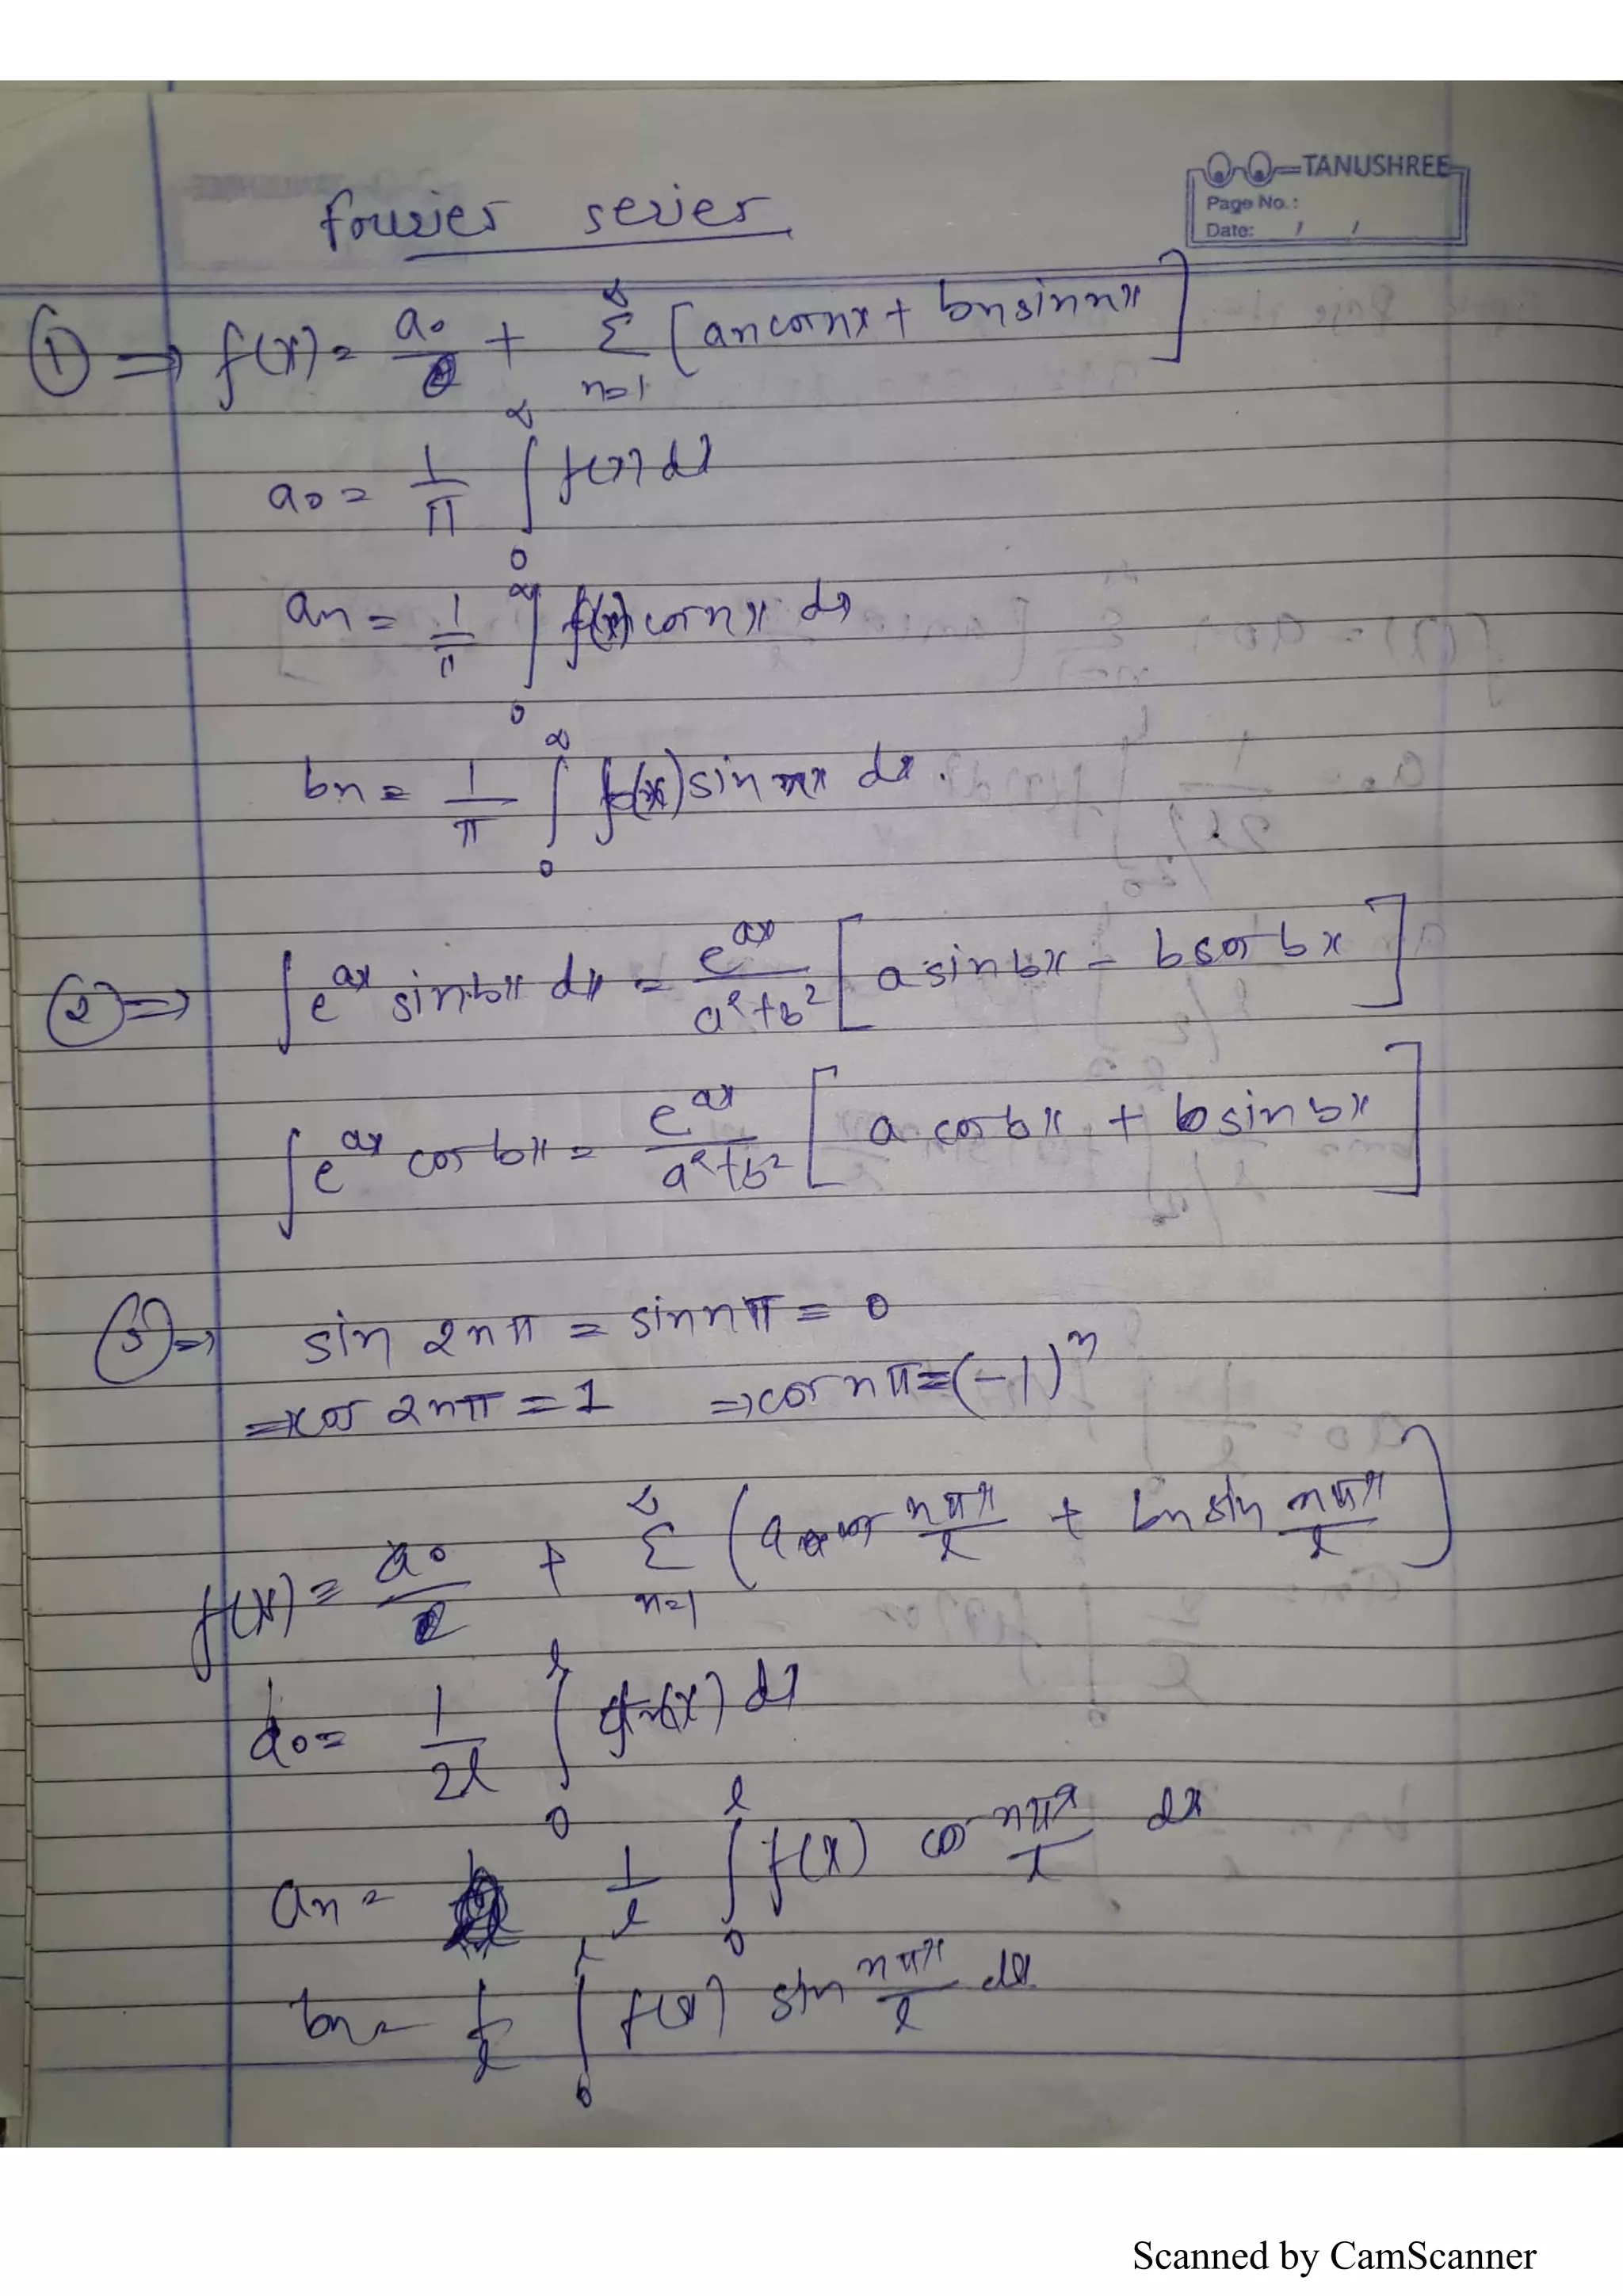 TANUSHREE
Page No.:
Date: / /
fourier series
① ⇒ f(x) = a0/2 + ∞ Σ n=1 [an cos nx + bn sin nx]
a0 = 1/π ∫ 0 ∞ f(x) dx
an = 1/π ∫ 0 ∞ f(x) cos nx dx
bn = 1/π ∫ 0 ∞ f(x) sin nx dx.
② ⇒ ∫ e^ax sin bx dx = e^ax/(a²+b²) [a sin bx - b cos bx]
∫ e^ax cos bx = e^ax/(a²+b²) [a cos bx + b sin bx]
③ ⇒ sin 2nπ = sin nπ = 0
⇒ cos 2nπ = 1 ⇒ cos nπ = (-1)^n
f(x) = a0/2 + ∞ Σ n=1 (an cos nπx/l + bn sin nπx/l]
a0 = 1/2l ∫ 0 l f(x) dx
an = 1/l ∫ 0 l f(x) cos nπx/l dx
bn = 1/l ∫ 0 l f(x) sin nπx/l dx
Scanned by CamScanner